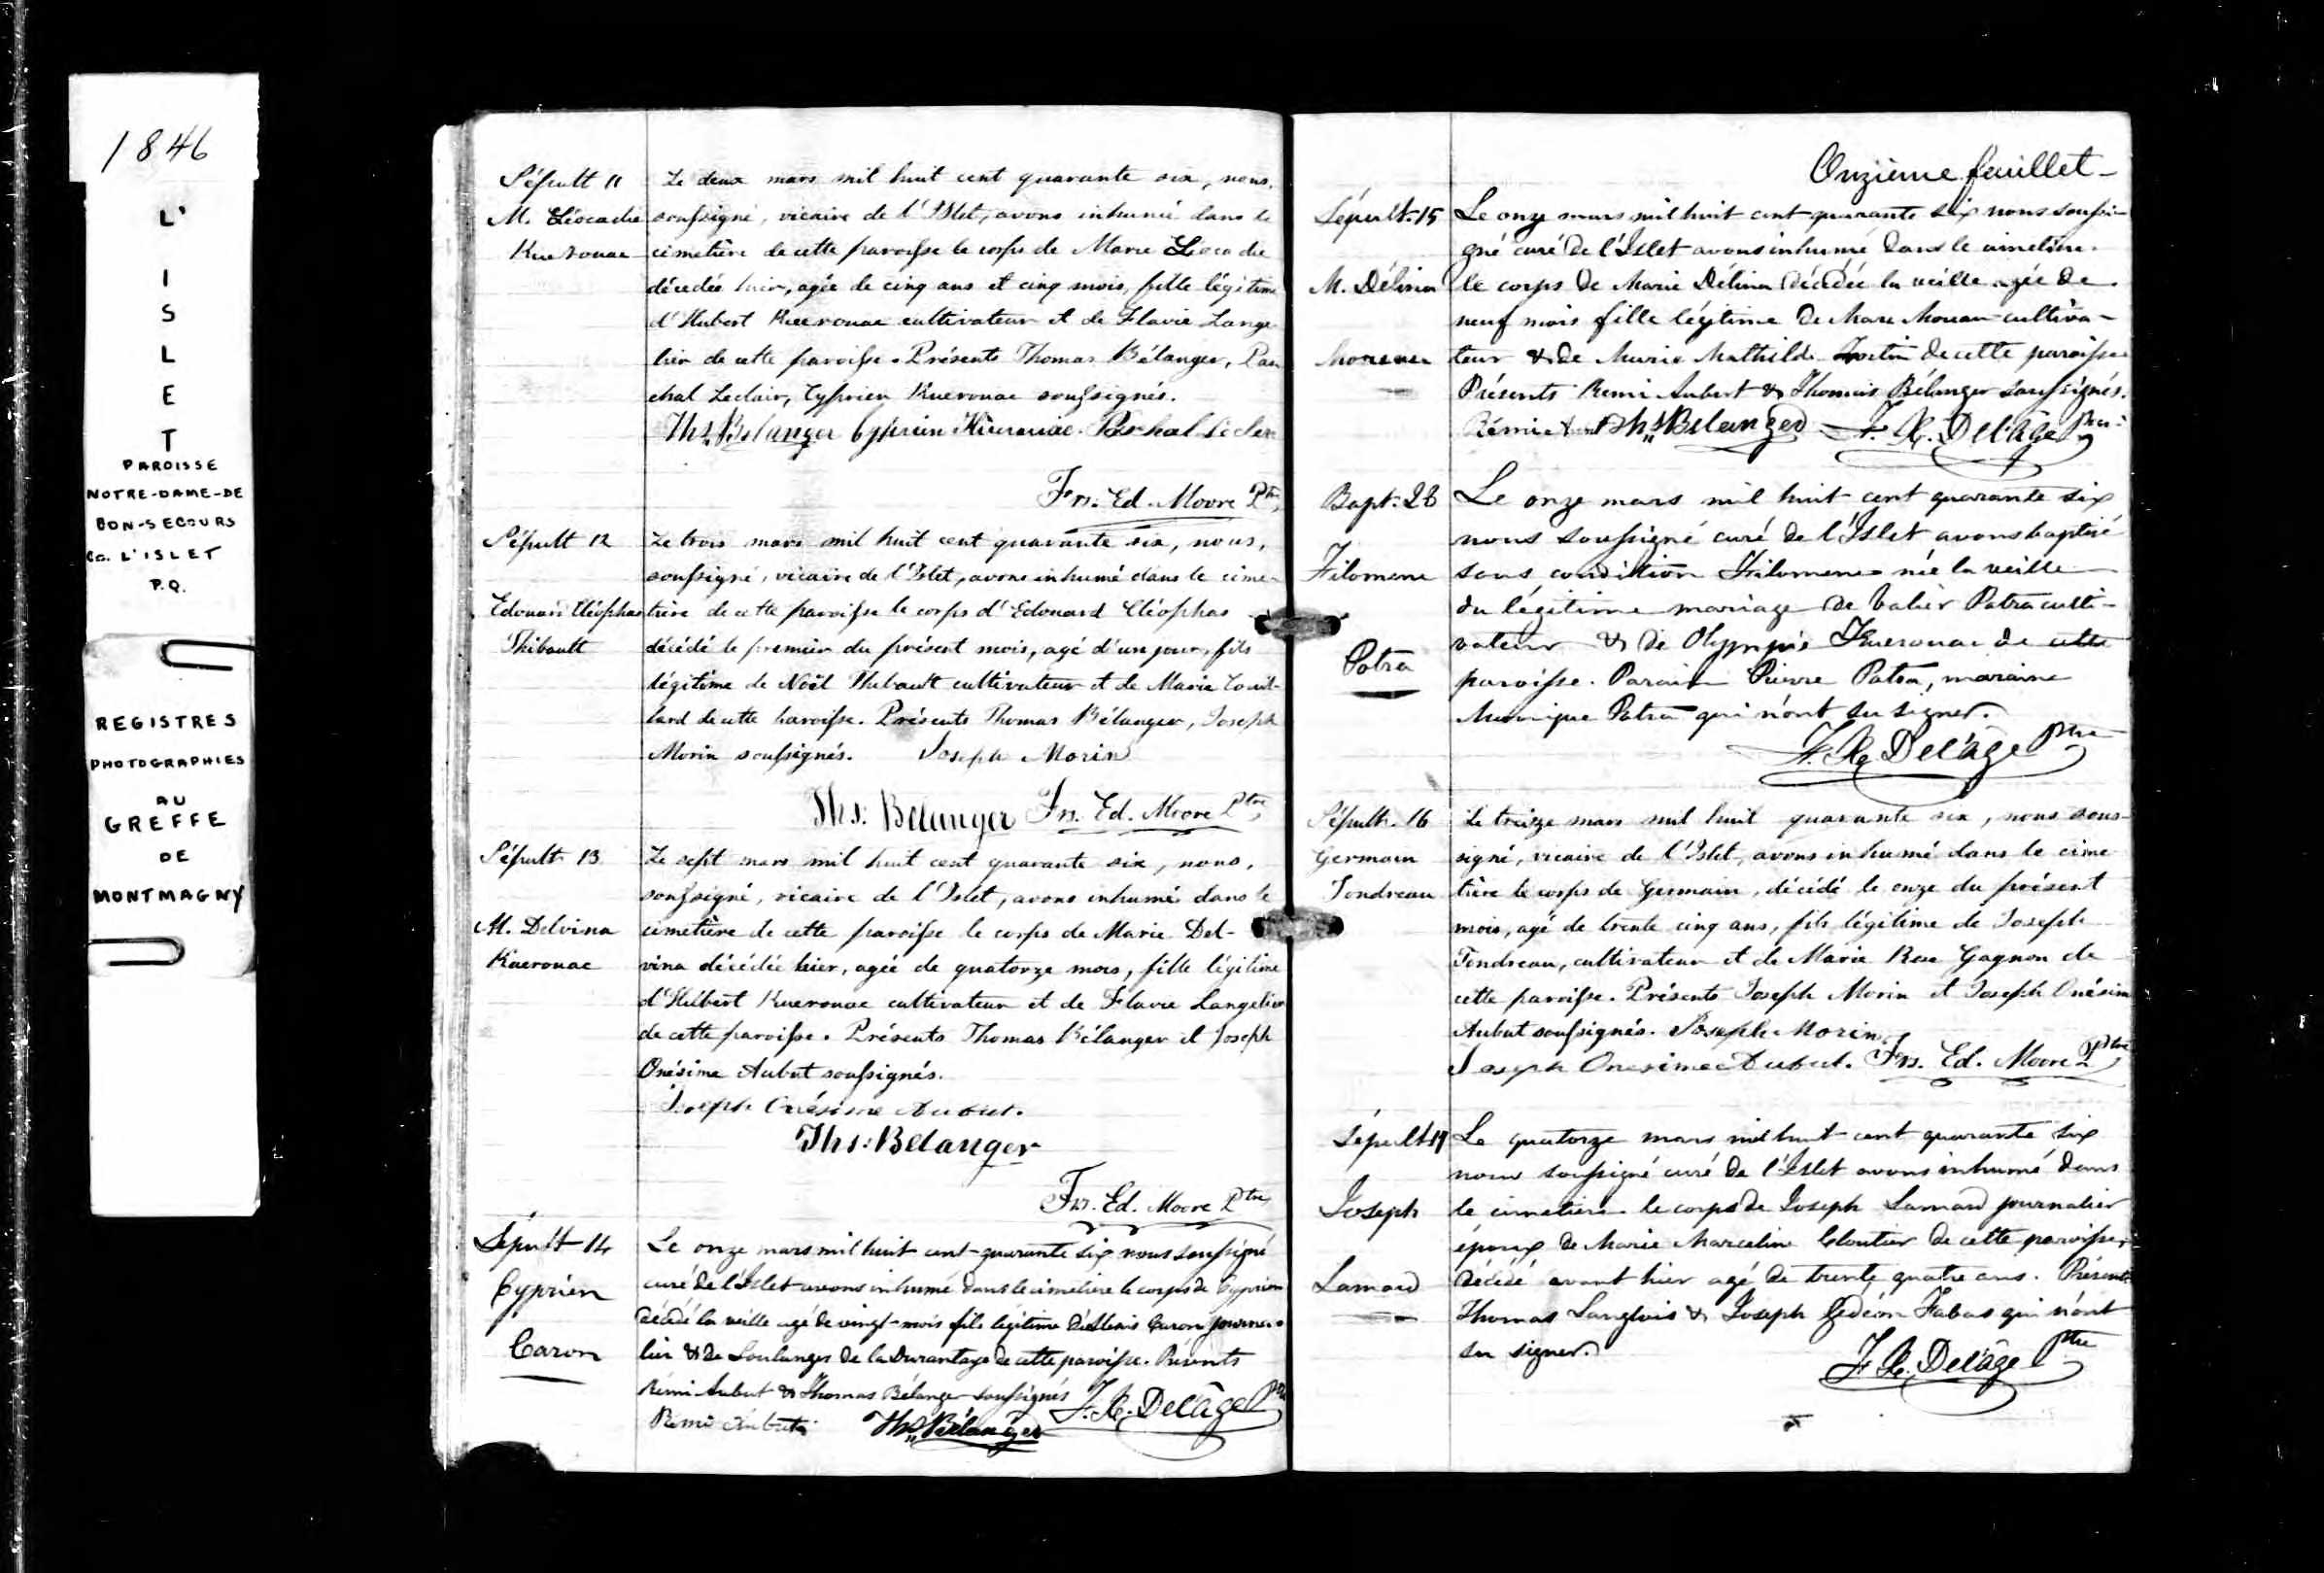 1846
L'
I
S
L
E
T
PAROISSE
NOTRE-DAME-DE
BON-SECOURS
Co. L'ISLET
P.Q.
REGISTRES
PHOTOGRAPHIES
AU
GREFFE
DE
MONTMAGNY
Sépult 11
M. Léocadie
Kuerouac
Le deux mars mil huit cent quarante six, nous,
soussigné, vicaire de l'Islet, avons inhumé dans le
cimetière de cette paroisse le corps de Marie Léocadie
décédée hier, agée de cinq ans et cinq mois, fille légitime
d'Hubert Kuerouac cultivateur et de Flavie Lange
lier de cette paroisse. Présents Thomas Bélanger, Pas
chal Leclair, Cyprien Kuerouac soussignés.
Ths. Bélanger Cyprien Kuerouac. Paschal
Frs. Ed. Moore Ptre
Sépult 12
Edouard Cléophas
Thibault
Le trois mars mil huit cent quarante six, nous,
soussigné, vicaire de l'Islet, avons inhumé dans le cime-
tière de cette paroisse le corps d'Edouard Cléophas
décédé le premier du présent mois, agé d'un jour, fils
légitime de Noël Thibault cultivateur et de Marie Couil-
lard de cette paroisse. Présents Thomas Bélanger, Joseph
Morin soussignés. Joseph Morin
Ths: Bélanger Frs. Ed. Moore Ptre
Sépult 13
M. Delvina
Kuerouac
Le sept mars mil huit cent quarante six, nous,
soussigné, vicaire de l'Islet, avons inhumé dans le
cimetière de cette paroisse le corps de Marie Del-
vina décédée hier, agée de quatorze mois, fille légitime
d'Hubert Kuerouac cultivateur et de Flavie Langelier
de cette paroisse. Présents Thomas Bélanger et Joseph
Onésime Aubut soussignés.
Joseph Onésime Aubut.
Ths: Bélanger
Frs. Ed. Moore Ptre
Sépult 14
Cyprien
Caron
Le onze mars mil huit cent quarante six nous soussigné
curé de l'Islet avons inhumé dans le cimetière le corps de Cyprien
décédé la veille agé de vingt-mois fils légitime d'Alexis Caron journa-
lier & de Soulanges de la Durantaye de cette paroisse. Présents
Rémi Aubut & Thomas Bélanger soussignés F. X. Delâge Ptre
Rémi Aubut Ths. Bélanger
Onzième feuillet
Sépult. 15
M. Délina
Le onze mars mil huit cent quarante six nous soussi-
gné curé de l'Islet avons inhumé dans le cimetière
le corps de Marie Délina décédée la veille agée de
neuf mois fille légitime de Marc cultiva-
teur & de Marie Mathilde de cette paroisse
Présents Remi Aubert & Thomas Bélanger soussignés.
Rémi Ths. Belanger F. X. Delâge Ptre
Bapt. 28
Filomene
Patra
Le onze mars mil huit cent quarante six
nous soussigné curé de l'Islet avons baptisé
sous condition Filomene née la veille
du légitime mariage de Valier Patra culti-
vateur & de Olympie Kuerouac de cette
paroisse. Parain Pierre Patra, maraine
Patra qui n'ont su signer.
F. X. Delâge Ptre
Sépult. 16
Germain
Fondreau
Le treize mars mil huit quarante six, nous sous-
signé, vicaire de l'Islet, avons inhumé dans le cime
tière le corps de Germain, décédé le onze du présent
mois, agé de trente cinq ans, fils légitime de Joseph
Fondreau, cultivateur et de Marie Gagnon de
cette paroisse. Présents Joseph Morin et Joseph Onésime
Aubut soussignés. Joseph Morin
Joseph Onesime Aubut. Frs. Ed. Moore Ptre
Sépult 17
Joseph
Lamard
Le quatorze mars mil huit cent quarante six
nous soussigné curé de l'Islet avons inhumé dans
le cimetière le corps de Joseph Lamard journalier
époux de Marie Marceline Cloutier de cette paroisse,
décédé avant hier agé de trente quatre ans. Présents
Thomas Langlois & Joseph Gédéon Fabas qui n'ont
su signer.
F. X. Delâge Ptre